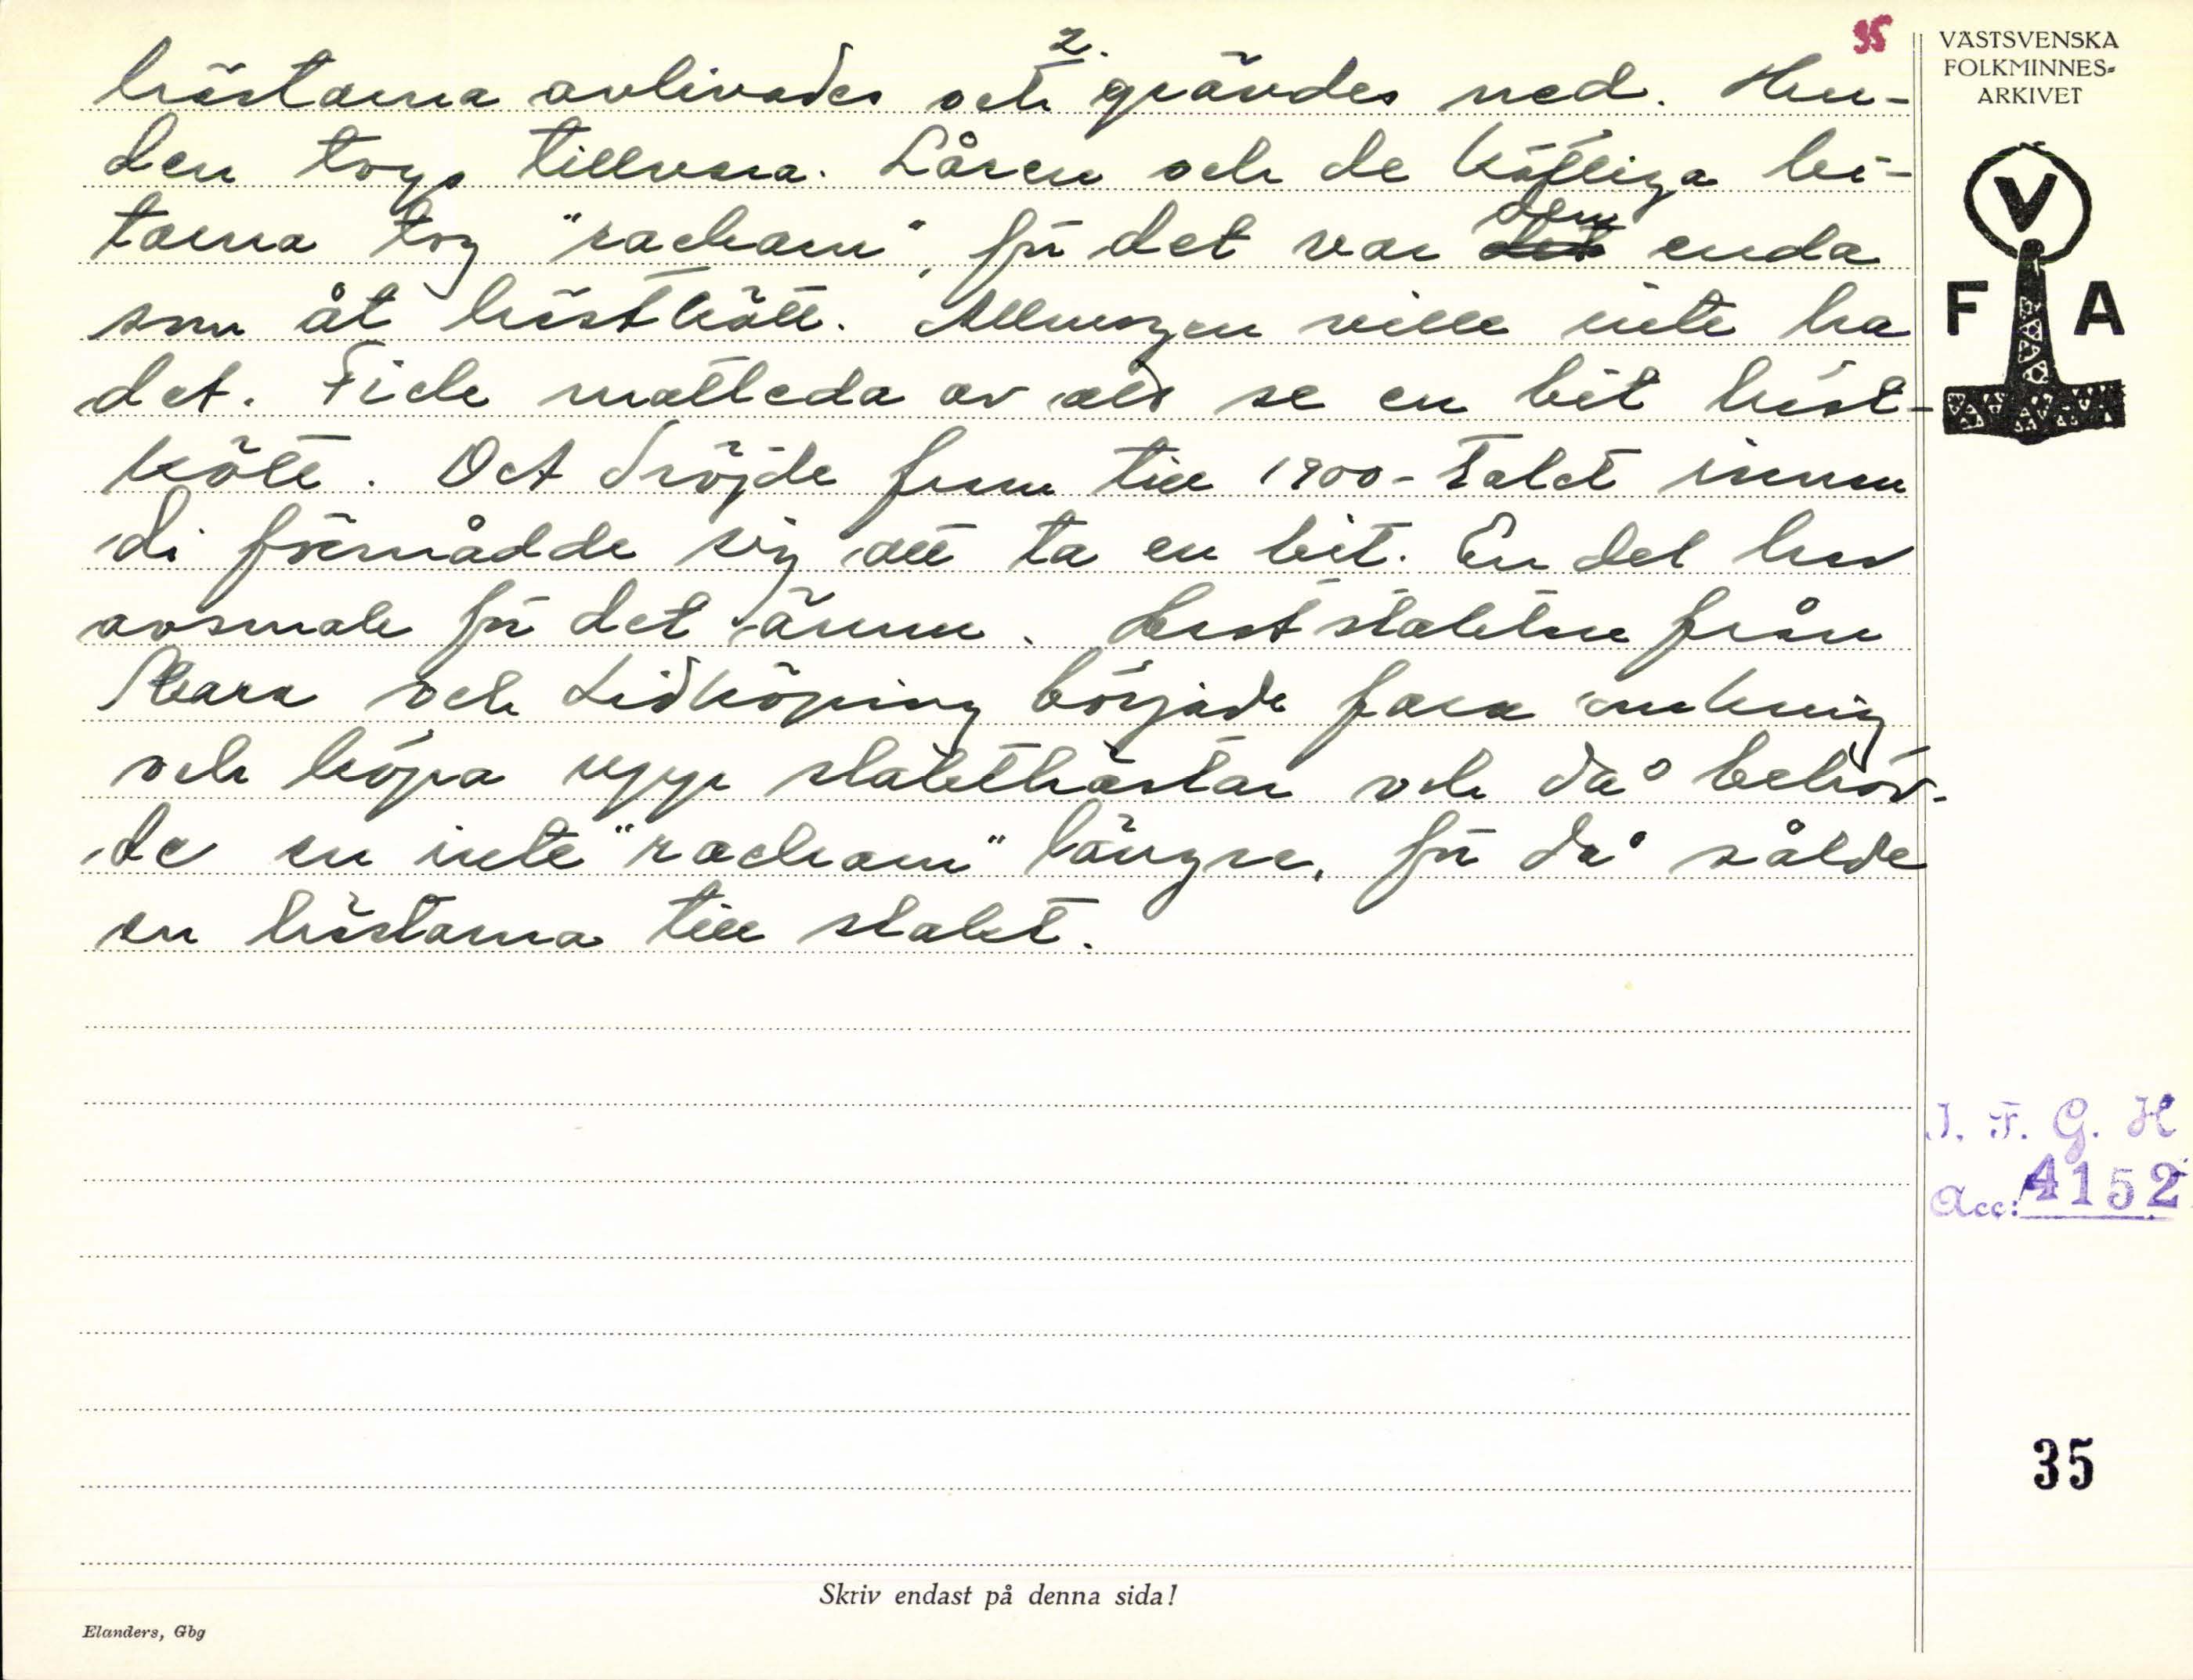 2.
35
hästarna avlivades och grävdes ned. Hu-
den togs tillvara. Låren och de köttliga bi-
tarna tog "rackarn", för det var ~~det~~ dem enda
som åt hästkött. Allmogen ville inte ha
det. Fick matleda av att se en bit häst-
kött. Det dröjde fram till 1900-talet innan
di förmådde sig att ta en bit. En del har
avsmak för det ännu. Hästslaktare från
Skara och Lidköping började fara omkring
och köpa upp slakthästar och då behöv-
de en inte "rackarn" längre, för då sålde
en hästarna till slakt.
VÄSTSVENSKA
FOLKMINNES-
ARKIVET
V
F A
I. F. G. H
Acc: 4152
35
Skriv endast på denna sida!
Elanders, Gbg